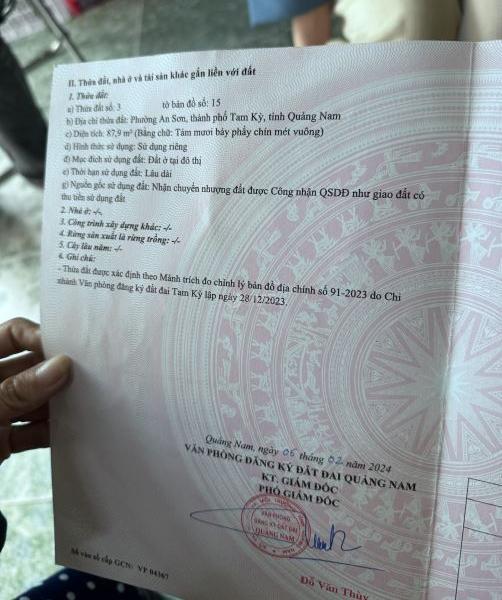 II. Thửa đất, nhà ở và tài sản khác gắn liền với đất
1. Thửa đất:
a) Thửa đất số: 3 tờ bản đồ số: 15
b) Địa chỉ thửa đất: Phường An Sơn, thành phố Tam Kỳ, tỉnh Quảng Nam
c) Diện tích: 87,9 m² (Bằng chữ: Tám mươi bảy phẩy chín mét vuông)
d) Hình thức sử dụng: Sử dụng riêng
đ) Mục đích sử dụng đất: Đất ở tại đô thị
e) Thời hạn sử dụng đất: Lâu dài
g) Nguồn gốc sử dụng đất: Nhận chuyển nhượng đất được Công nhận QSDĐ như giao đất có
thu tiền sử dụng đất
2. Nhà ở: -/-
3. Công trình xây dựng khác: -/-
4. Rừng sản xuất là rừng trồng: -/-
5. Cây lâu năm: -/-
6. Ghi chú:
- Thửa đất được xác định theo Mảnh trích đo chỉnh lý bản đồ địa chính số 91-2023 do Chi
nhánh Văn phòng đăng ký đất đai Tam Kỳ lập ngày 28/12/2023.
Quảng Nam, ngày 06 tháng 02 năm 2024
VĂN PHÒNG ĐĂNG KÝ ĐẤT ĐAI QUẢNG NAM
KT. GIÁM ĐỐC
PHÓ GIÁM ĐỐC
VĂN PHÒNG
ĐĂNG KÝ ĐẤT ĐAI
QUẢNG NAM
Đỗ Văn Thùy
Số vào sổ cấp GCN: VP 04367